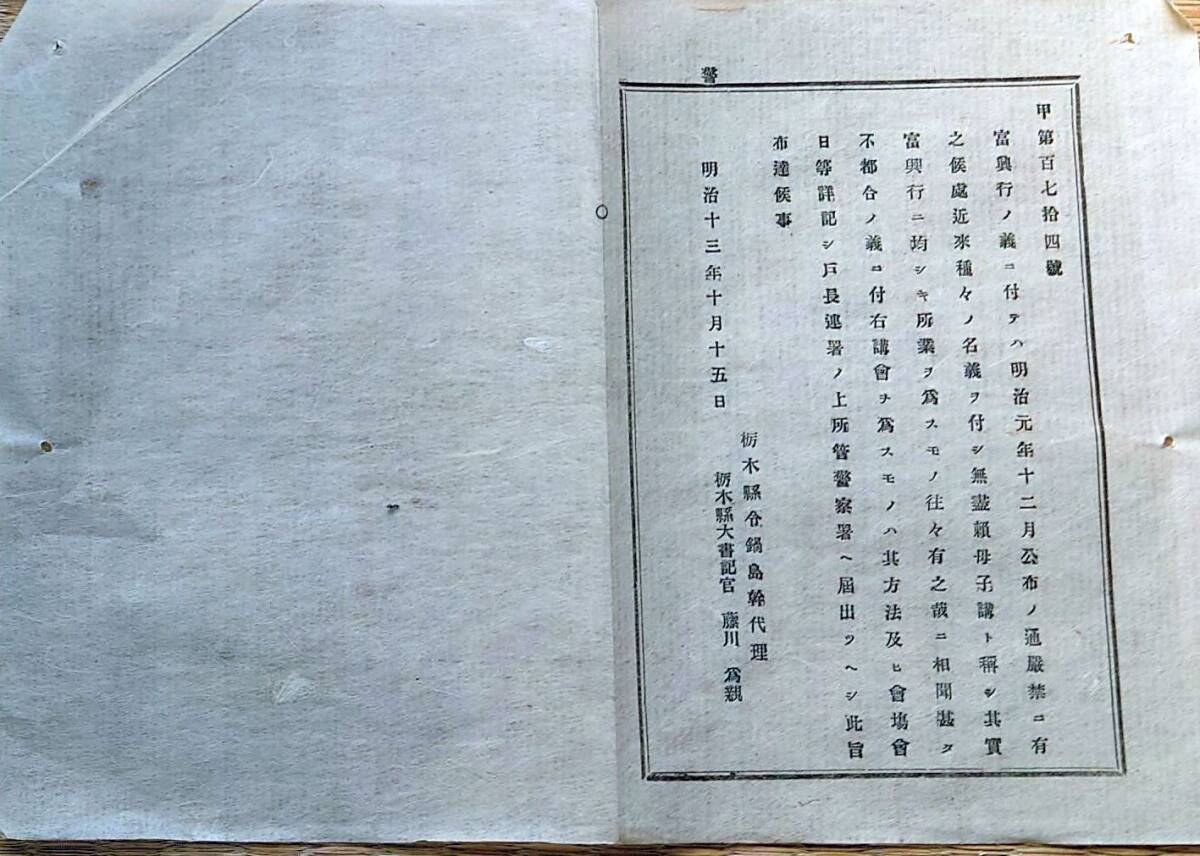 警
甲第百七拾四號
富興行ノ義ニ付テハ明治元年十二月公布ノ通嚴禁ニ有
之候處近來種々ノ名義ヲ付シ無盡賴母子講ト稱シ其實
富興行ニ均シキ所業ヲ爲スモノ往々有之哉ニ相聞甚タ
不都合ノ義ニ付右講會ヲ爲スモノハ其方法及ヒ會塲會
日等詳記シ戸長連署ノ上所管警察署ヘ屆出ツヘシ此旨
布達候事
明治十三年十月十五日
栃木縣令鍋島幹代理
栃木縣大書記官 藤川爲親